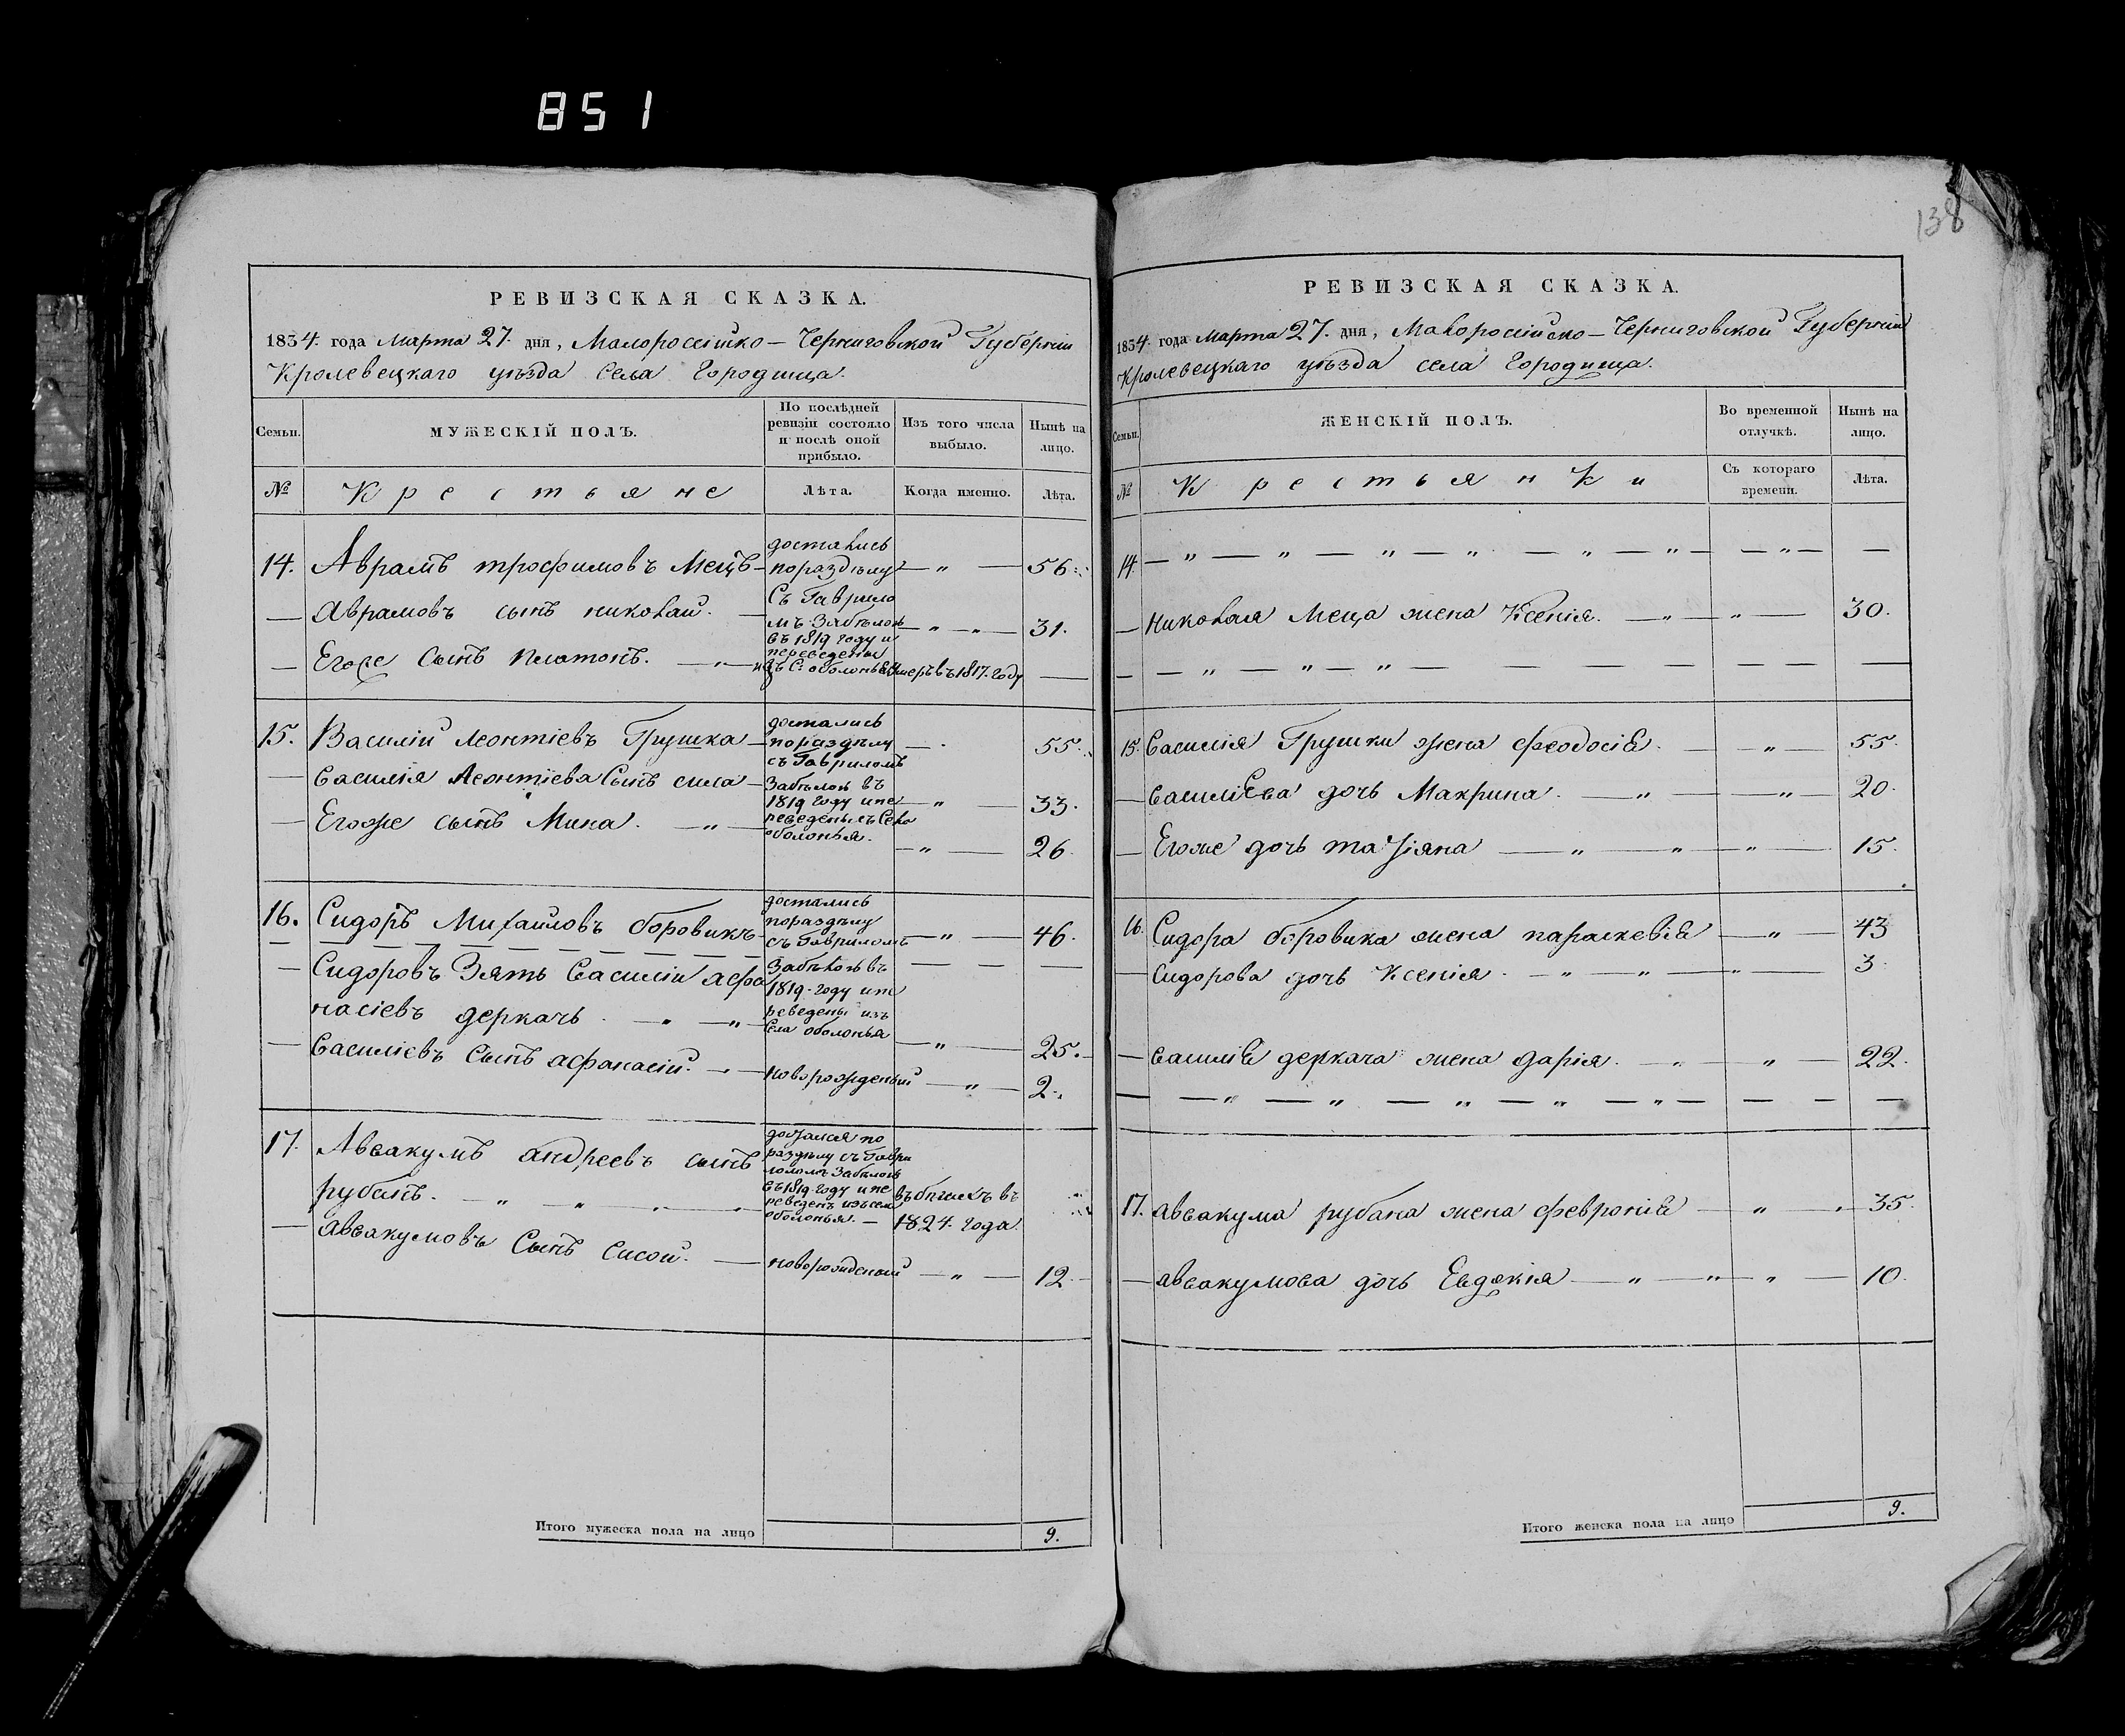 851
138
РЕВИЗСКАЯ СКАЗКА.
1834 года Марта 27. дня, Малороссійско-Черниговской Губерніи
Кролевецкаго уѣзда Села Городища.
Семьи.
МУЖЕСКІЙ ПОЛЪ.
По послѣдней
ревизіи состояло
и послѣ оной
прибыло.
Изъ того числа
выбыло.
Нынѣ на
лицо.
№
Крестьяне
Лѣта.
Когда именно.
Лѣта.
14. Аврамъ трофимовъ Мецъ
— Аврамовъ сынъ николай.
— Егоже Сынъ Платонъ.
достались
поразделу
Съ Гаврило
мъ Забѣлой
въ 1819 году и
переведены
изъ С. оболонья
умеръ въ 1817. году
56.
31.
15. Василій леонтіевъ Грушка
— василія леонтіева Сынъ сила
— Егоже сынъ Мина.
достались
поразделу
съ Гавриломъ
Забѣлой въ
1819 году и пе
реведены съ Села
оболонья.
55.
33.
26.
16. Сидоръ Михайловъ боровикъ
— Сидоровъ Зять василій афа
насіевъ деркачь.
— василіевъ Сынъ афанасій.
достались
поразделу
съ Гавриломъ
Забѣлой въ
1819. году и пе
реведены изъ
Села оболонья
новорожденый
46.
25.
2.
17. Аввакумъ андреевъ сынъ
рубанъ.
— аввакумовъ Сынъ сисой.
достался по
разделу съ Гаври
ломъ Забѣлой
въ 1819. году и пе
реведенъ изъ села
оболонья.
новорожденый
въ бѣгахъ въ
1824. года
12.
Итого мужеска пола на лицо
9.
РЕВИЗСКАЯ СКАЗКА.
1834 года Марта 27. дня, Малоросійско-Черниговской Губерніи
Кролевецкаго уѣзда села Городища.
Семьи.
ЖЕНСКІЙ ПОЛЪ.
Во временной
отлучкѣ.
Нынѣ на
лицо.
№
Крестьянки
Съ котораго
времени.
Лѣта.
14
— николая Меца жена Ксенія. 30.
15. василія Грушки жена феодосія. 55.
— василіева дочь Макрина. 20.
— Егоже дочь татіяна 15.
16. Сидора боровика жена параскевія 43
— Сидорова дочь Ксенія. 3.
— василія деркача жена дарія. 22.
17. аввакума рубана жена февронія 35.
— аввакумова дочь Евдокія 10.
Итого женска пола на лицо
9.